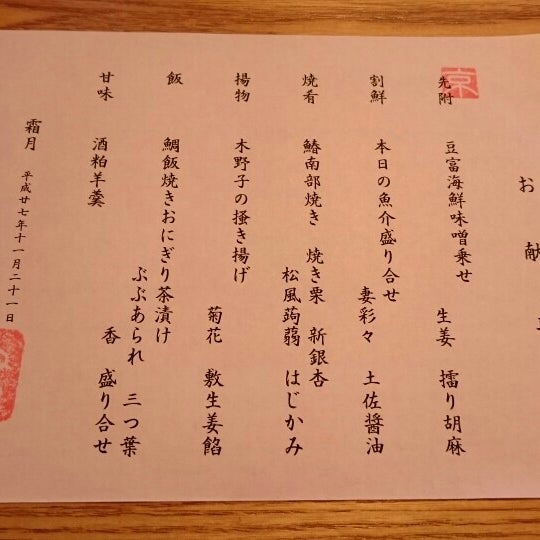 お献立
京
先附 豆富海鮮味噌乗せ
生姜 擂り胡麻
割鮮 本日の魚介盛り合せ
妻彩々 土佐醤油
焼肴 鰆南部焼き 焼き栗 新銀杏
松風蒟蒻 はじかみ
揚物 木野子の掻き揚げ
菊花 敷生姜餡
飯 鯛飯焼きおにぎり茶漬け
ぶぶあられ 三つ葉
香 盛り合せ
甘味 酒粕羊羹
霜月
平成廿七年十一月二十一日